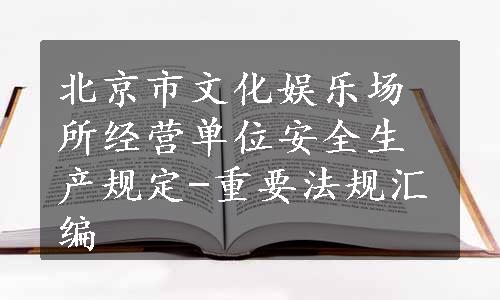 北京市文化娱乐场
所经营单位安全生
产规定-重要法规汇
编